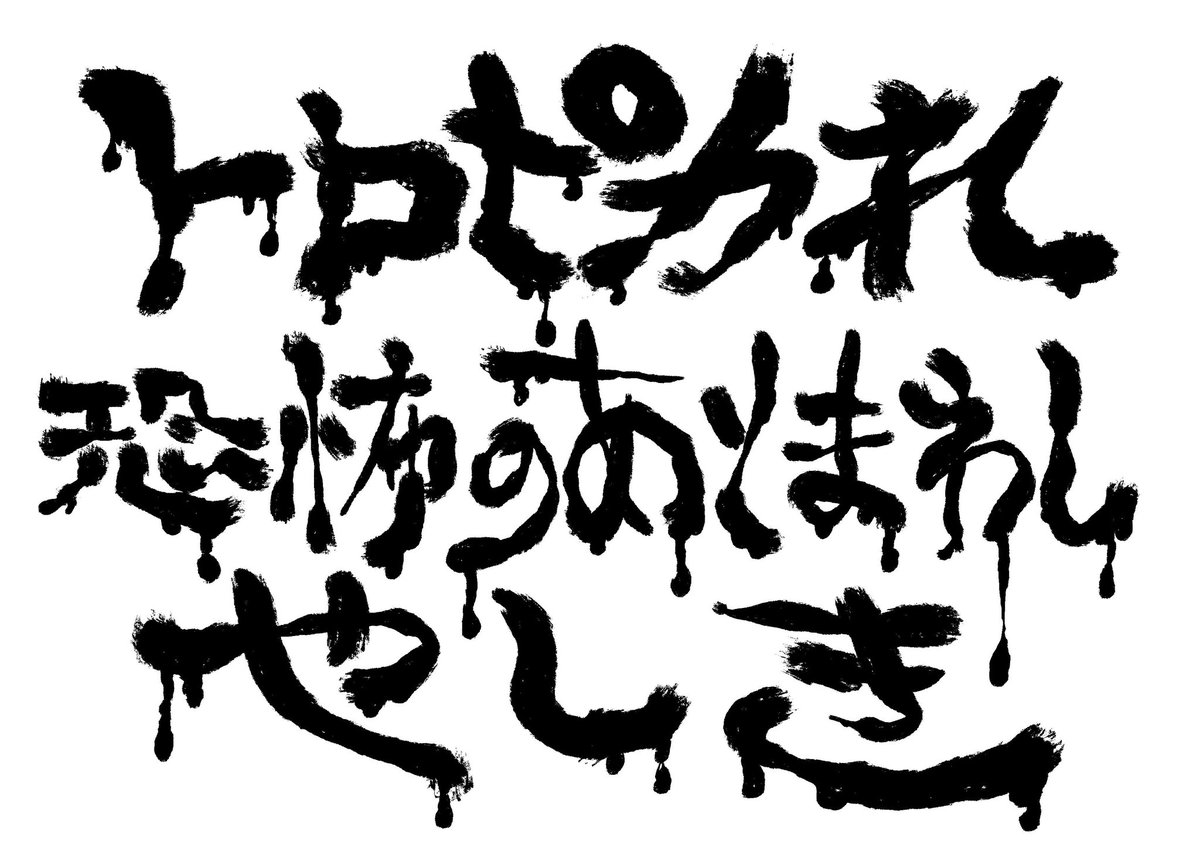 トロピカれ
恐怖のあとまわし
やしき